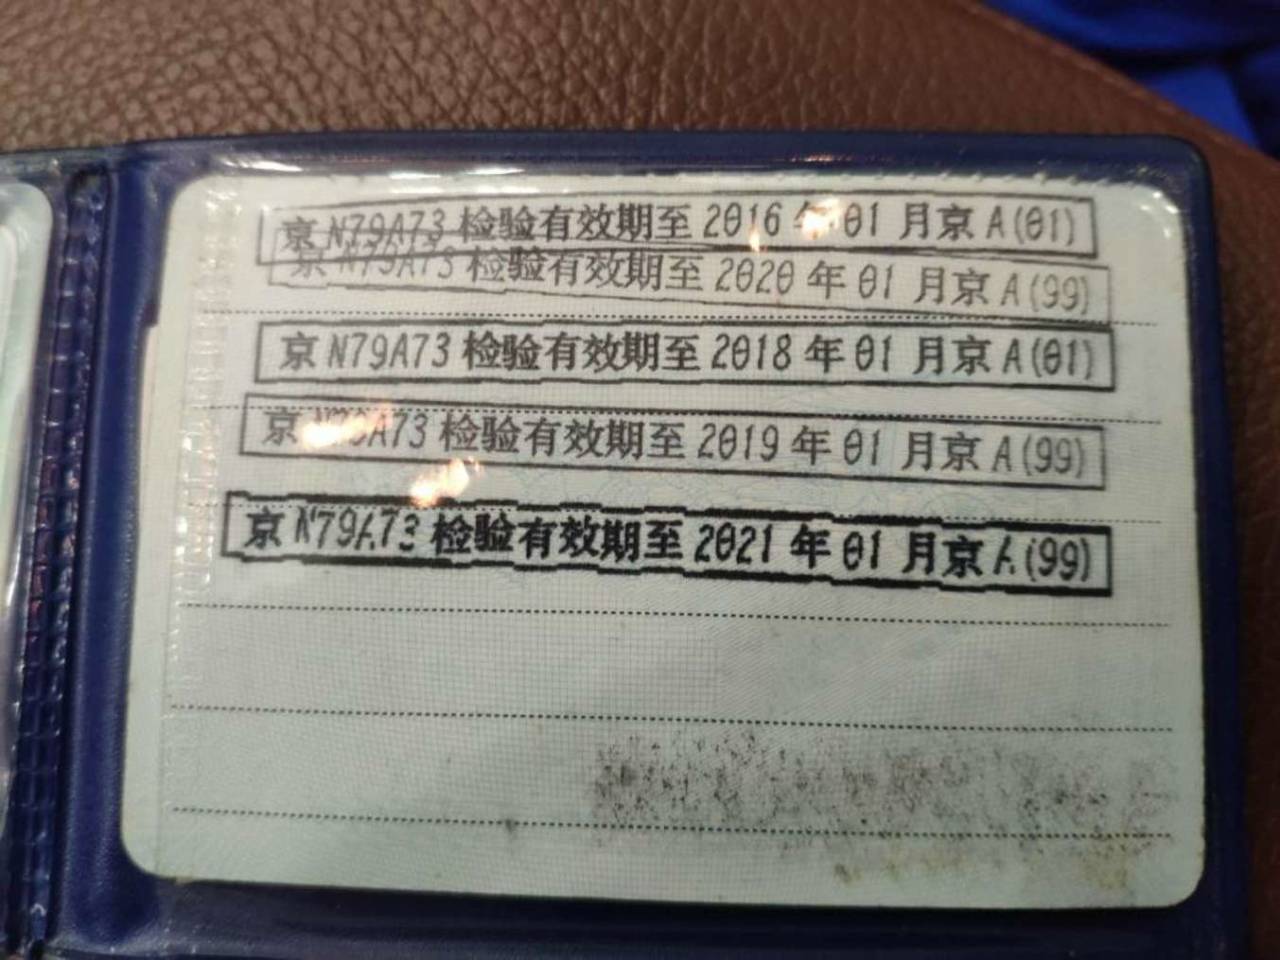 京N79A73检验有效期至2016年01月京A(01)
京N79A73检验有效期至2020年01月京A(99)
京N79A73检验有效期至2018年01月京A(01)
京N79A73检验有效期至2019年01月京A(99)
京N79A73检验有效期至2021年01月京A(99)